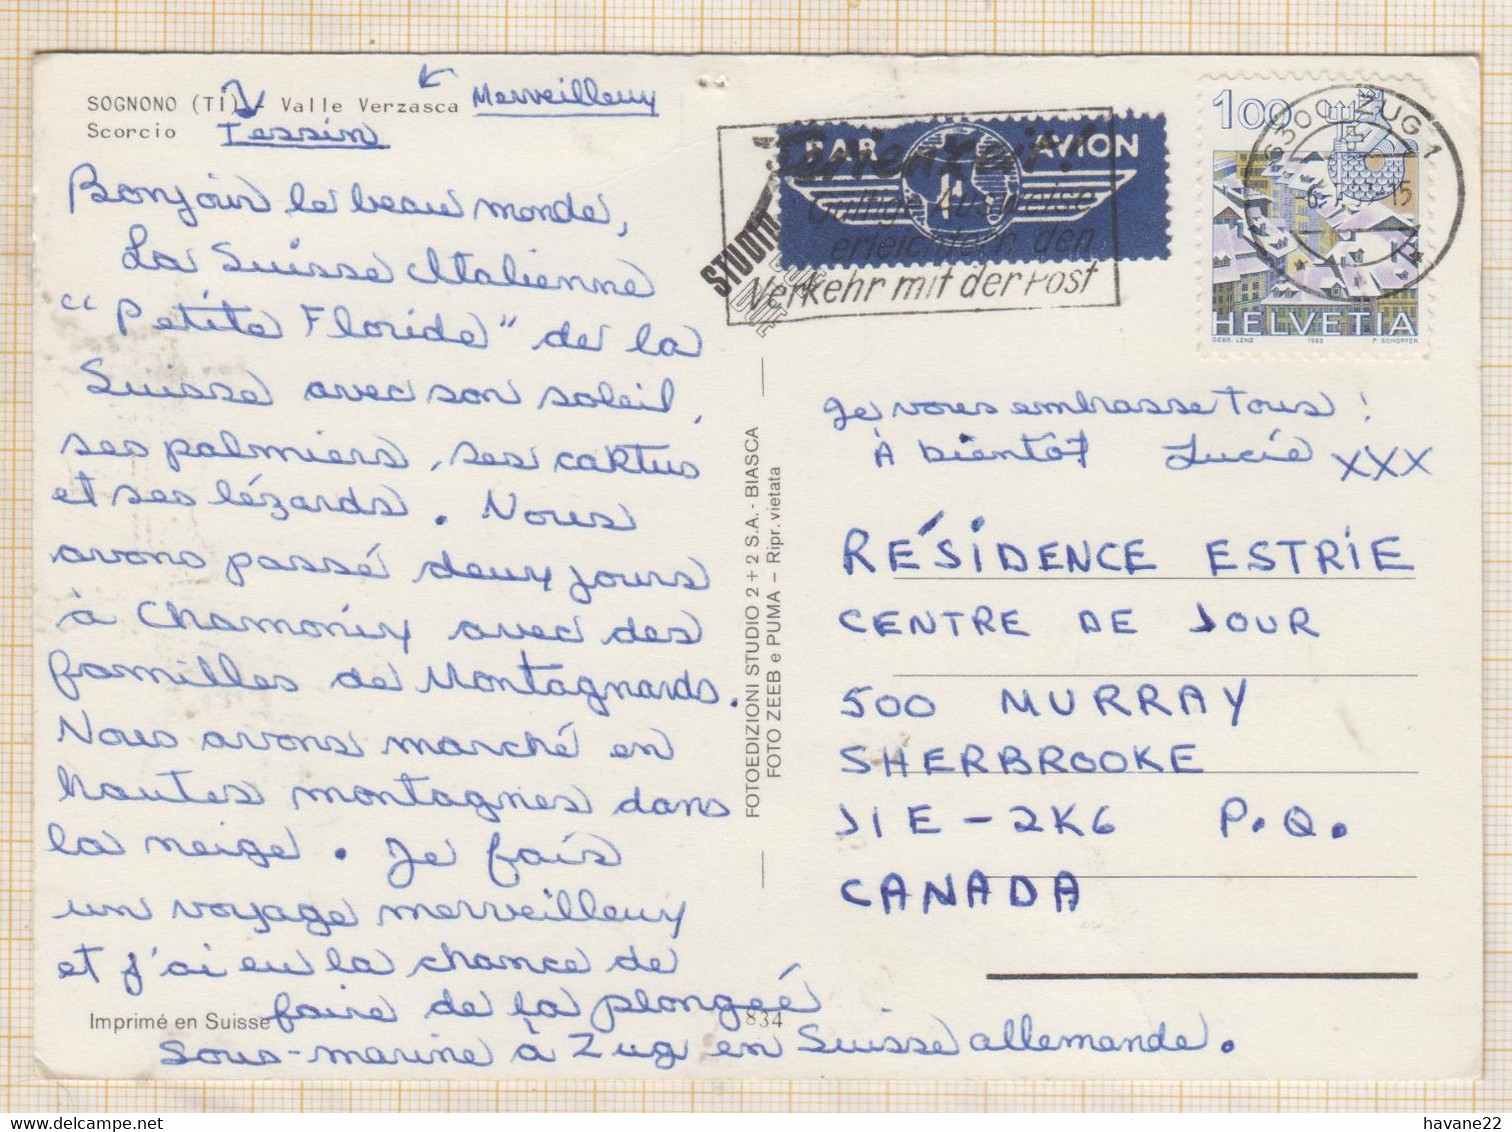 SOGNONO (TI) - Valle Verzasca Merveilleux
Scorcio Tessin
Bonjour le beau monde,
La Suisse Italienne
"Petite Floride" de la
Suisse avec son soleil,
ses palmiers, ses caktus
et ses lézards. Nous
avons passé deux jours
à Chamonix avec des
familles de Montagnards.
Nous avons marché en
hautes montagnes dans
la neige. Je fais
un voyage merveilleux
et j'ai eu la chance de
faire de la plongeé
sous-marine à Zug en Suisse allemande.
Imprimé en Suisse
834
FOTOEDIZIONI STUDIO 2+2 S.A. - BIASCA
FOTO ZEEB e PUMA - Ripr. vietata
STUDIO
DUE
PAR AVION
Gültige Ausweise
erleichtern den
Verkehr mit der Post
100
HELVETIA
GEBR. LENZ 1982 P. SCHOPFER
6300 ZUG 1
Je vous embrasse tous!
À bientôt Lucie XXX
RÉSIDENCE ESTRIE
CENTRE DE JOUR
500 MURRAY
SHERBROOKE
J1E-2K6 P.Q.
CANADA
havane22